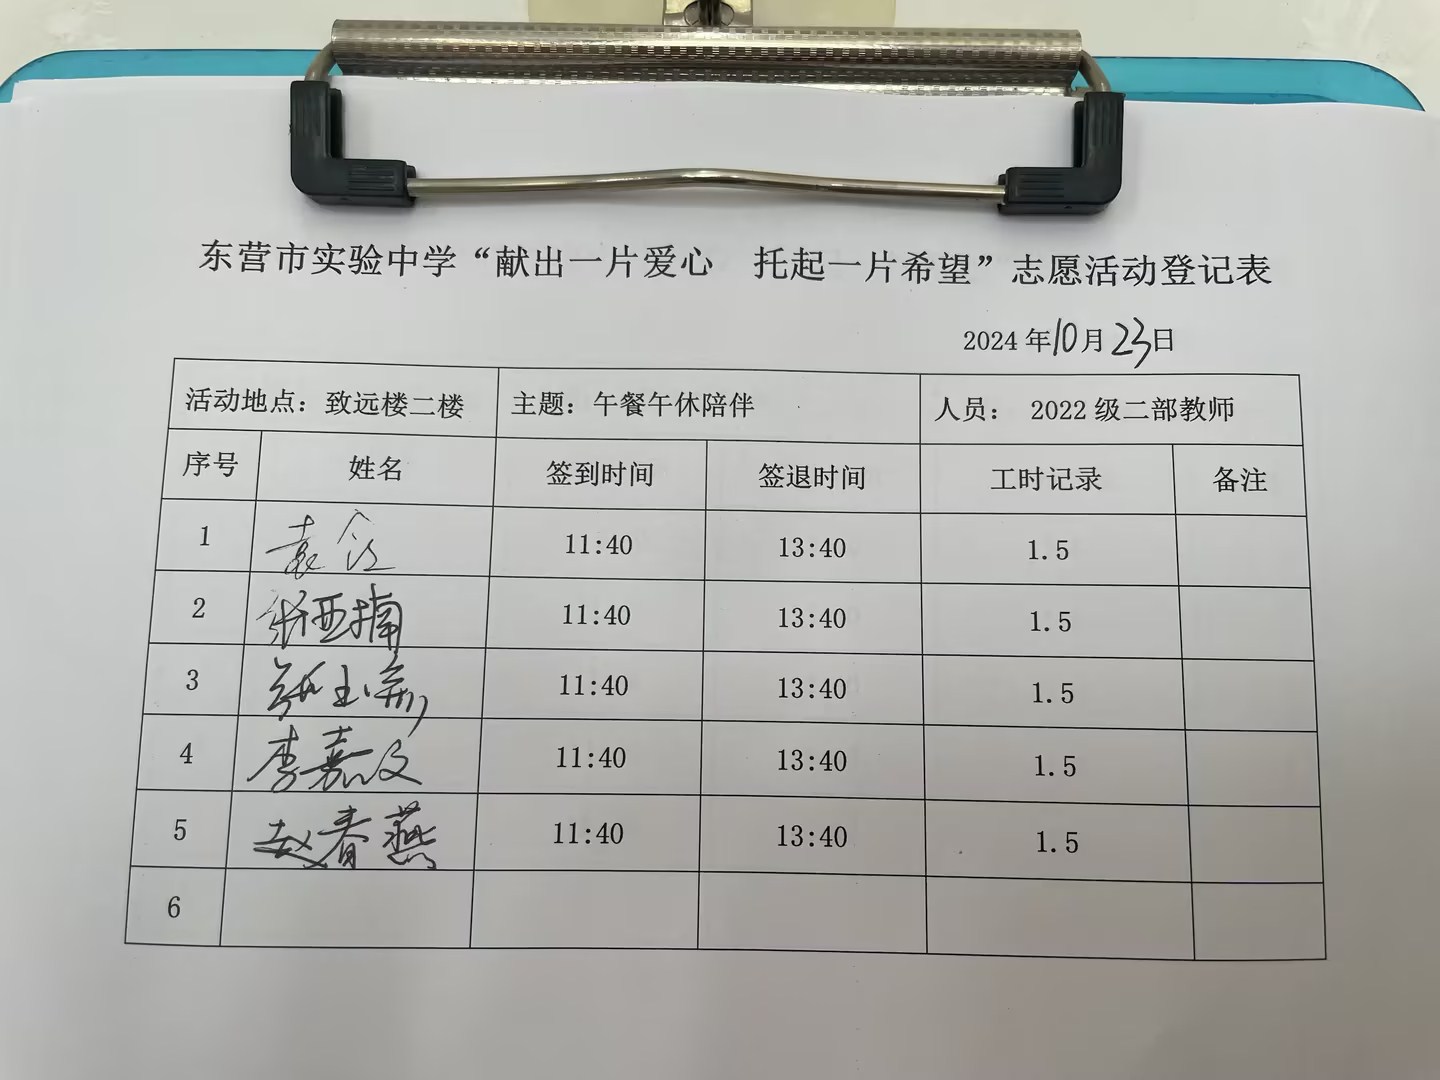 东营市实验中学“献出一片爱心 托起一片希望”志愿活动登记表
2024 年10月23日
活动地点：致远楼二楼 主题：午餐午休陪伴 人员： 2022 级二部教师
序号 姓名 签到时间 签退时间 工时记录 备注
1 袁 11:40 13:40 1.5
2 张亚楠 11:40 13:40 1.5
3 11:40 13:40 1.5
4 李嘉文 11:40 13:40 1.5
5 赵春燕 11:40 13:40 1.5
6